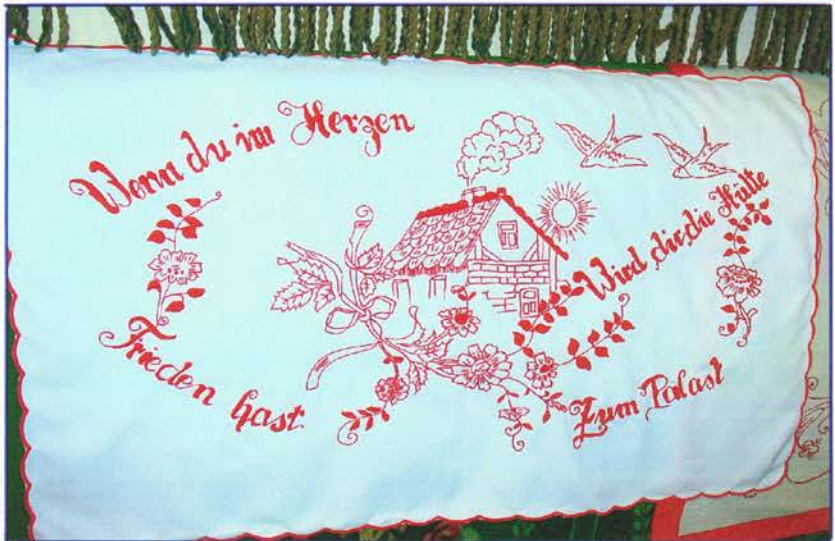 Wenn du im Herzen
Frieden hast
Wird dir die Hütte
Zum Palast